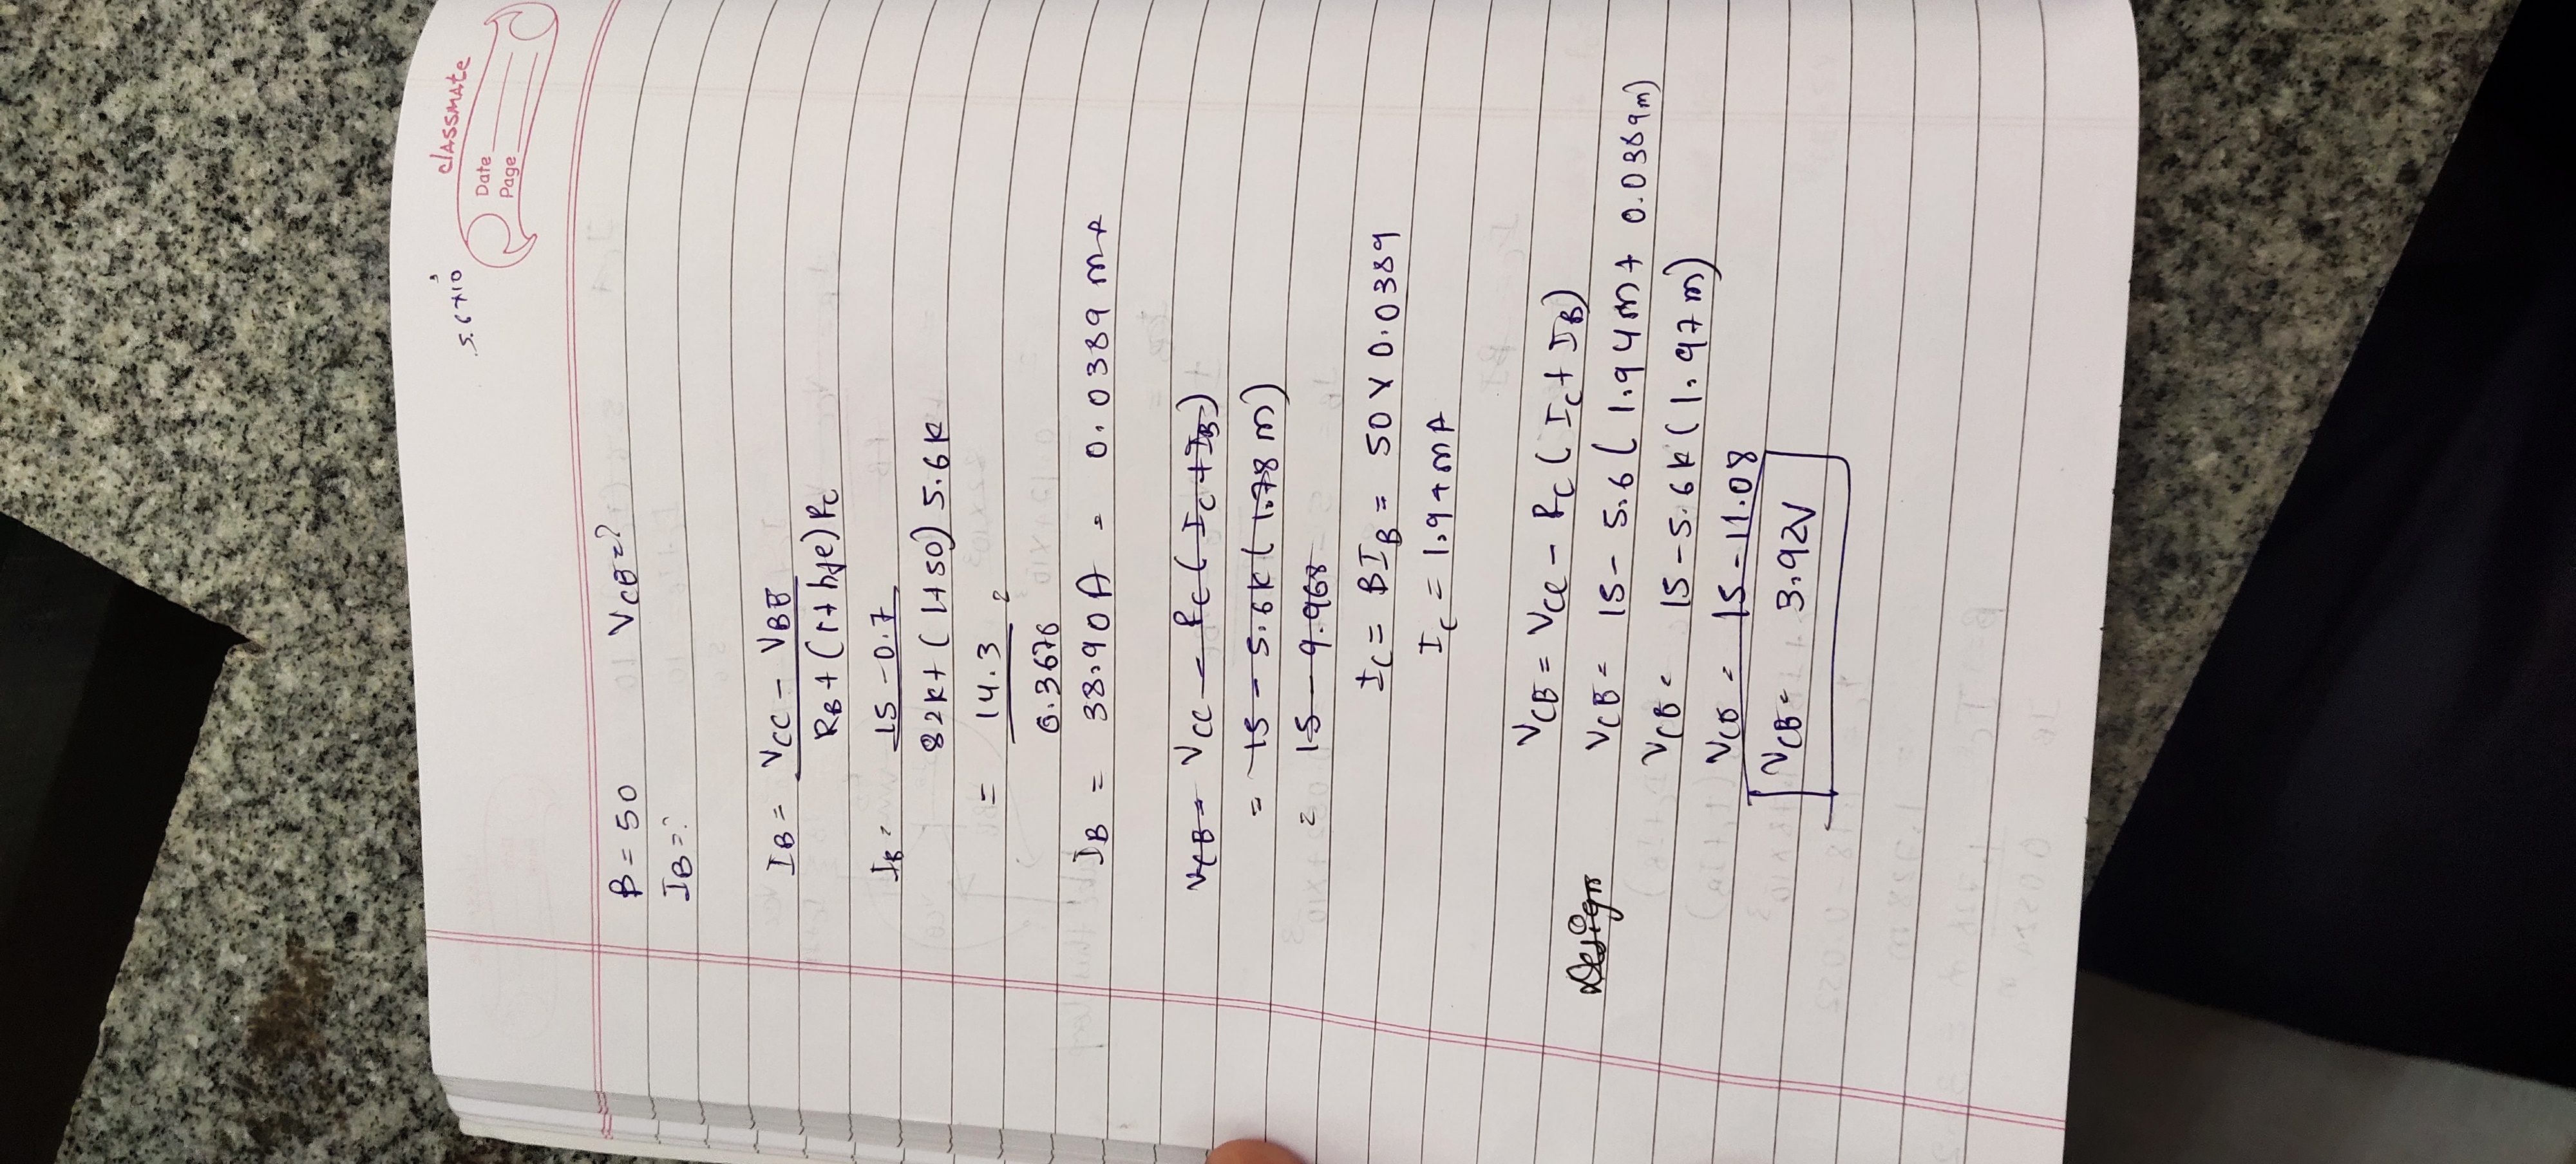 5.6×10³
classmate
Date
Page
β = 50 VCE = ?
IB = ?
IB = VCC - VBE
RB + (1 + hfe) RC
IB = 15 - 0.7
82k + (1+50) 5.6k
= 14.3 =
0.3676
IB = 38.90 A = 0.0389 mA
VCE = VCC - RC (IC + IB)
= 15 - 5.6k (1.78 m)
= 15 - 9.968
IC = BIB = 50 × 0.0389
IC = 1.94 mA
VCE = VCC - RC (IC + IB)
Design
VCE = 15 - 5.6 (1.94m + 0.0389m)
VCE = 15 - 5.6k (1.97m)
VCE = 15 - 11.08
VCE = 3.92V